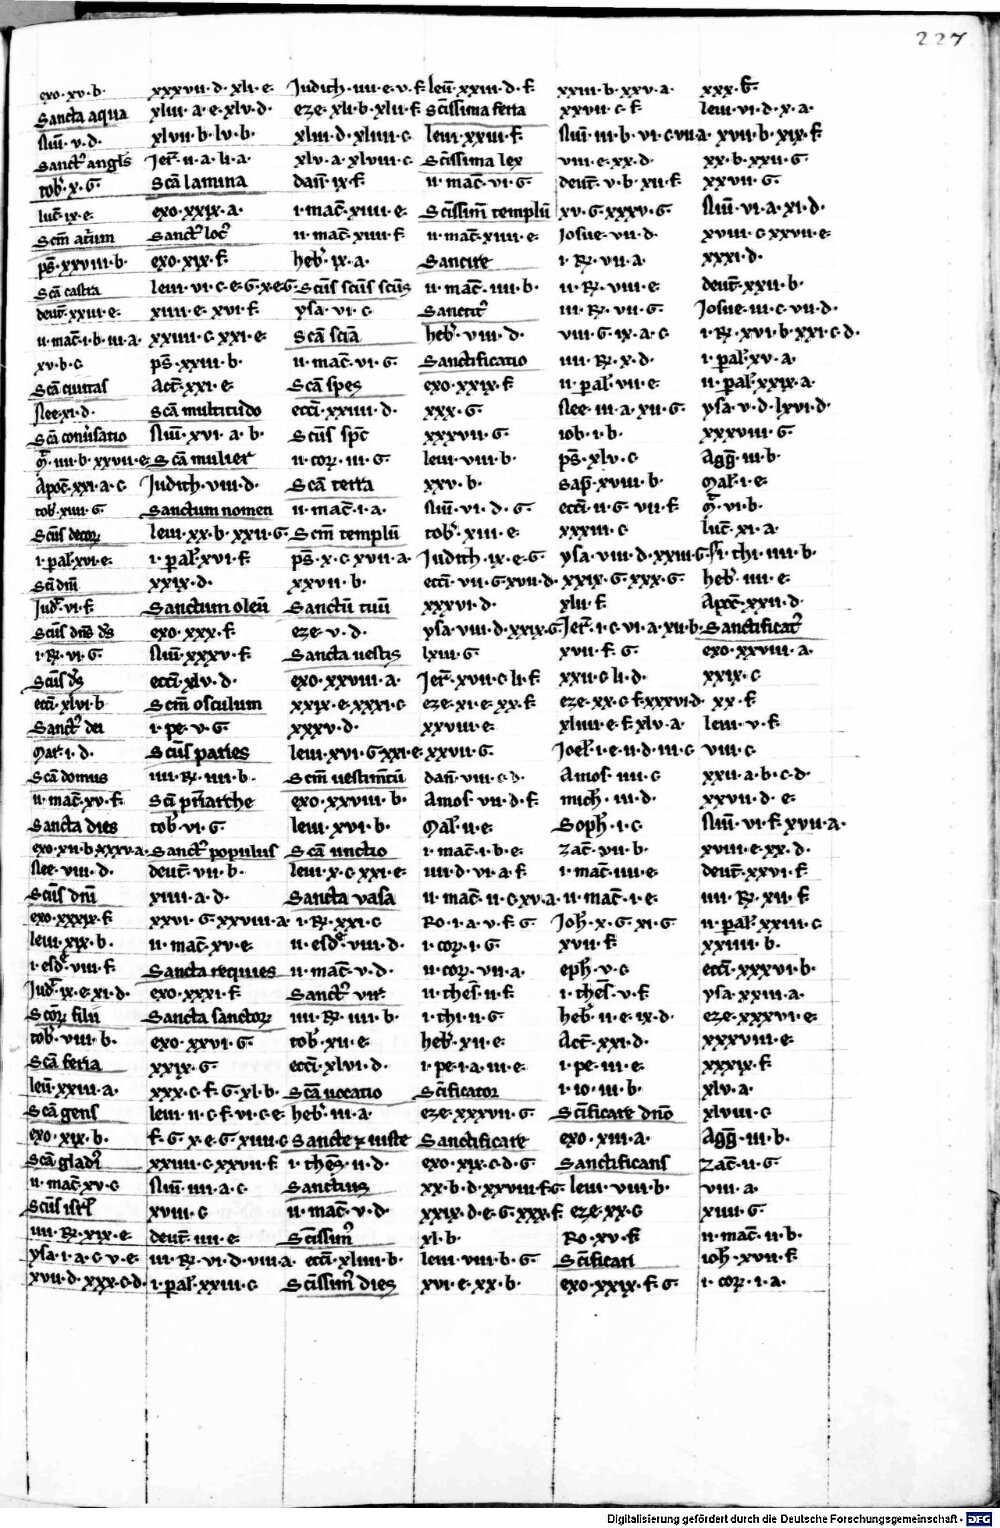 227
exo·xv·b·
Sancta aqua
Nuͫ·v·d·
Sanctꝰ anglꝰ
tobͥ·x·G·
luc̄·ix·e·
Scm̄ atͥum
ps̄·xxviii·b·
Scā castra
deut̄·xxiii·e·
ii·mac̄·i·b·iii·a·
xv·b·c
Scā ciuitas
Nee·xi·d·
Scā conuͥsatio
iiii·b·xxvii·e
Apoc̄·xxi·a·c
tob·xiiii·G·
Scūs decor
i·paral·xvi·e·
Judͥ·vi·f
Scūs dn̄s ds̄
i·R·vi·G·
Scūs ds̄
ecci·xlvi·b
Sanctꝰ dei
Mar·i·d·
Scā domus
ii·mac̄·xv·f·
Sancta dies
exo·xii·b·xxxv·a·
Nee·viii·d·
Scūs dn̄i
exo·xxxix·f
leui·xix·b·
i·esdͥ·viii·f
Judͥ·ix·e·xi·d·
Scorꝝ filii
tobͥ·viii·b·
Scā feria
leui·xxiii·a·
Scā gens
exo·xix·b·
Scā gladiꝰ
ii·mac̄·xv·c
Scūs isrl̄
iiii·R·xix·e
ysa·i·a·c·v·e·
xvii·d·xxx·c·d·
xxxvii·d·xli·e·
xliii·a·e·xlv·d·
xlvii·b·lv·b·
Jer̄·ii·a·li·a·
Scā lamina
exo·xxix·a·
Sanctꝰ locꝰ
exo·xix·f·
leui·vi·c·e·G·x·e·G·
xiiii·e·xvi·f·
xxiiii·c·xxi·e·
ps̄·xxiii·b·
Act̄·xxi·e·
Scā multitudo
Nuͫ·xvi·a·b·
Scā mulier
Judith·viii·d·
Sanctum nomen
leui·xx·b·xxii·G·
i·paral·xvi·f·
xxix·d·
Sanctum oleū
exo·xxx·f·
Nuͫ·xxxv·f
ecci·xlv·d·
Scm̄ osculum
i·pe·v·G·
Scūs paries
iiii·R·iiii·b·
Scī pr̄iarche
tobͥ·vi·G·
Sanctꝰ populus
deut̄·vii·b·
xiiii·a·d·
xxvi·G·xxviii·a
ii·mac̄·xv·e·
Sancta requies
exo·xxxi·f·
Sancta sanctorꝝ
exo·xxvi·G·
xxix·G·
xxx·c·f·G·xl·b·
leui·ii·c·f·vi·c·e
f·G·x·e·G·xiiii·c
xxiiii·c·xxvii·f
Nuͫ·iiii·a·c·
xviii·c
deut̄·iiii·e·
iii·R·vi·d·viii·a·
i·paral·xxiii·c
Judith·iiii·e·v·f·
eze·xli·b·xlii·f
xliii·d·xliiii·c
xlv·a·xlviii·c
dan̄·ix·f·
i·mac̄·xiiii·e·
ii·mac̄·xiiii·f
hebͥ·ix·a·
Scūs scūs scūs
ysa·vi·c
Scā scīa
ii·mac̄·vi·G·
Scā spes
ecci·xxiiii·d·
Scūs spc̄
ii·cor·iii·G·
Scā terra
ii·mac̄·i·a·
Scm̄ templū
ps̄·x·c·xvii·a·
xxvii·b·
Sanctū tuū
eze·v·d·
Sancta uestis
exo·xxviii·a·
xxix·e·xxxi·c
xxxv·d·
leui·xvi·G·xxi·e·
Scm̄ uestimētū
exo·xxviii·b·
leui·xvi·b·
Scā unctio
leui·x·c·xxi·e·
Sancta vasa
i·R·xxi·c
ii·esdͥ·viii·d·
ii·mac̄·v·d·
Sanctꝰ vir
iiii·R·iiii·b·
tobͥ·xii·e·
ecci·xlvi·d·
Scā uocatio
hebͥ·iii·a·
Sancte ⁊ iuste
i·thes̄·ii·d·
Sanctius
ii·mac̄·v·d·
Scīssimꝰ
ecci·xliiii·b·
Scīssimꝰ dies
leui·xxiii·d·f
Scīssima feria
leui·xxiii·f·
Scīssima lex
ii·mac̄·vi·G·
Scīssim̄ templū
ii·mac̄·xiiii·e·
Sancite
ii·mac̄·iiii·b·
Sanctitꝰ
hebͥ·viii·d·
Sanctificatio
exo·xxix·f
xxx·G·
xxxvii·G·
leui·viii·b·
xxv·b·
Nuͫ·vi·d·G·
tobͥ·xiii·e·
Judith·ix·e·G·
ecci·vii·G·xvii·d·
xxxvi·d·
ysa·viii·d·xxix·G·
lxii·G·
Jer·xvii·c·li·f
eze·xi·e·xx·f
xxviii·e·
xxvii·G·
dan̄·viii·c·d·
Amos·vii·d·f·
Mal·ii·e·
i·mac̄·i·b·e·
iiii·d·vi·a·f
ii·mac̄·ii·c·xv·a·
Ro·i·a·v·f·G·
i·cor·i·G·
ii·cor·vii·a·
ii·thes̄·ii·f
i·thi·ii·G·
hebͥ·xii·e·
i·pe·i·a·iii·e·
Scīficator
eze·xxxvii·G·
Sanctificare
exo·xix·c·d·G·
xx·b·d·xxviii·f·G·
xxix·d·e·G·xxx·f
xl·b·
leui·viii·b·G·
xvi·e·xx·b·
xxiii·b·xxv·a·
xxvii·c·f·
Nuͫ·iii·b·vi·c·vii·a·
viii·e·xx·d·
deut̄·v·b·xii·f·
xv·G·xxxv·G·
Josue·vii·d·
i·R·vii·a·
ii·R·viii·e·
iii·R·vii·G·
viii·G·ix·a·c
iiii·R·x·d·
ii·paral·vii·e·
Nee·iii·a·xii·G·
iob·i·b·
ps̄·xlv·c
sap̄·xviii·b·
ecci·ii·G·vii·f
xxxiii·c
ysa·viii·d·xxiii·G·
xxix·G·xxx·G·
xlii·f
Jer̄·i·c·vi·a·xii·b·
xvii·f·G·
xxii·c·li·d·
eze·xx·c·f·xxxvi·d·
xliiii·e·f·xlv·a·
Joel·i·e·ii·d·iii·c
Amos·iiii·c
mich·iii·d·
Soph·i·c
zac̄·vii·b·
i·mac̄·iiii·e·
ii·mac̄·i·e·
Joh·x·G·xi·G·
xvii·f
eph·v·c
i·thes̄·v·f·
hebͥ·ii·e·ix·d·
Act̄·xxi·d·
i·pe·iii·e·
i·io·iii·b·
Scīficare dn̄o
exo·xiii·a·
Sanctificans
leui·viii·b·
eze·xx·c
Ro·xv·f
Scīficari
exo·xxix·f·G·
xxx·G·
leui·vi·d·x·a·
xvii·b·xix·f
xx·b·xxii·G·
xxvii·G·
Nuͫ·vi·a·xi·d·
xviii·c·xxvii·e·
xxxi·d·
deut̄·xxii·b·
Josue·iii·c·vii·d·
i·R·xvi·b·xxi·c·d·
i·paral·xv·a·
ii·paral·xxix·a·
ysa·v·d·lxvi·d·
xxxviii·G·
Agḡ·iii·b·
Mal·i·e·
vi·b·
luc̄·xi·a·
i·thi·iiii·b·
hebͥ·iiii·e·
Apoc̄·xxii·d·
Sanctificatꝰ
exo·xxviii·a·
xxix·c
xx·f·
leui·v·f·
viii·c
xxii·a·b·c·d·
xxvii·d·e·
Nuͫ·vi·f·xvii·a·
xviii·e·xx·d·
deut̄·xxvi·f·
iiii·R·xii·f·
ii·paral·xxiii·c
xxiiii·b·
ecci·xxxvi·b·
ysa·xxiii·a·
eze·xxxvi·e·
xxxviii·e·
xxxix·f
xlv·a·
xlviii·c
Agḡ·iii·b·
zac̄·ii·G·
viii·a·
xiiii·G·
ii·mac̄·ii·b·
ioh·xvii·f
i·cor·i·a·
Digitalisierung gefördert durch die Deutsche Forschungsgemeinschaft · DFG